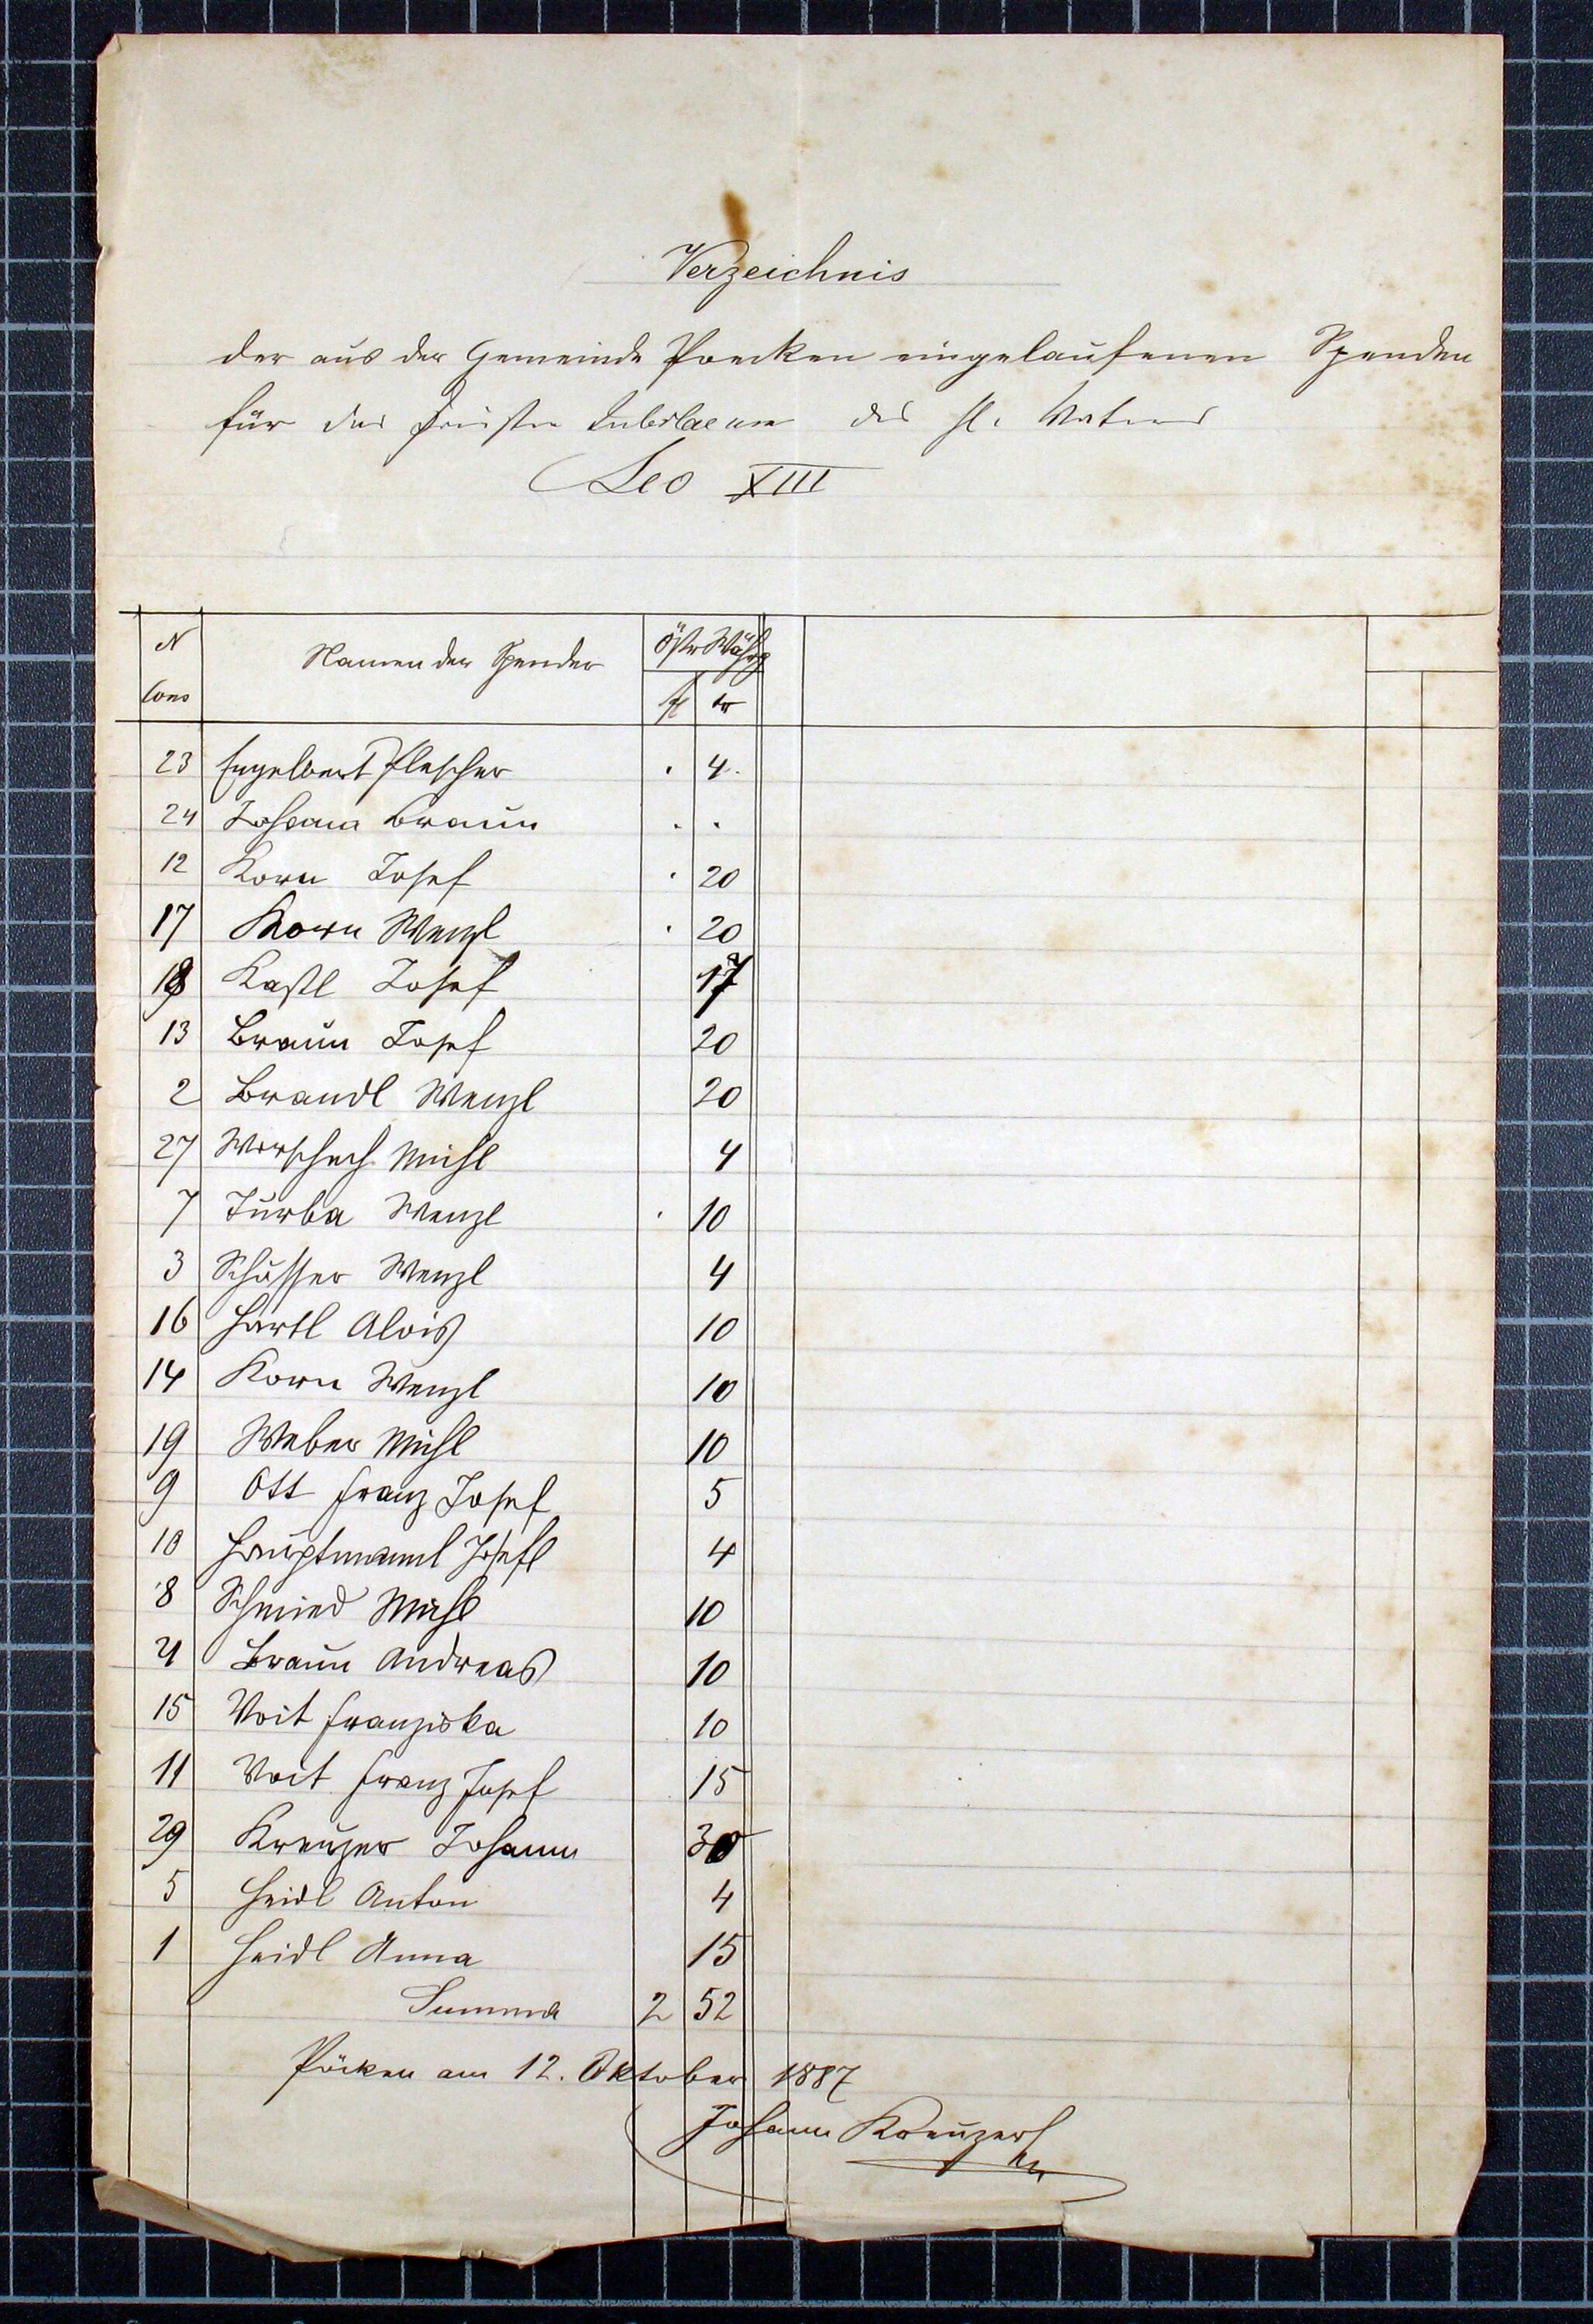 Verzeichnis
der aus der Gemeinde Poecken eingelaufenen Spenden
für das Priester Jubilaeum des hl. Vaters
Leo XIII
N Cons Namen der Spender Östr Währg fl kr
23 Engelbert Plescher . 4.
24 Johann Braun . .
12 Korn Josef . 20
17 Korn Wenzl . 20
18 Kastl Josef 17
13 Braun Josef 20
2 Brandl Wenzl 20
27 Worschech Michl 4
7 Turba Wenzl . 10
3 Schusser Wenzl 4
16 Hartl Alois 10
14 Korn Wenzl 10
19 Weber Michl 10
9 Ott Franz Josef 5
10 Hauptmannl Josefl 4
8 Schmied Michl 10
4 Braun Andreas 10
15 Voit Franziska 10
11 Voit Franz Josef 15
29 Kreuzer Johann 30
5 Heidl Anton 4
1 Heidl Anna 15
Summa 2 52
Pöcken am 12. Oktober 1887
Johann Kreuzer